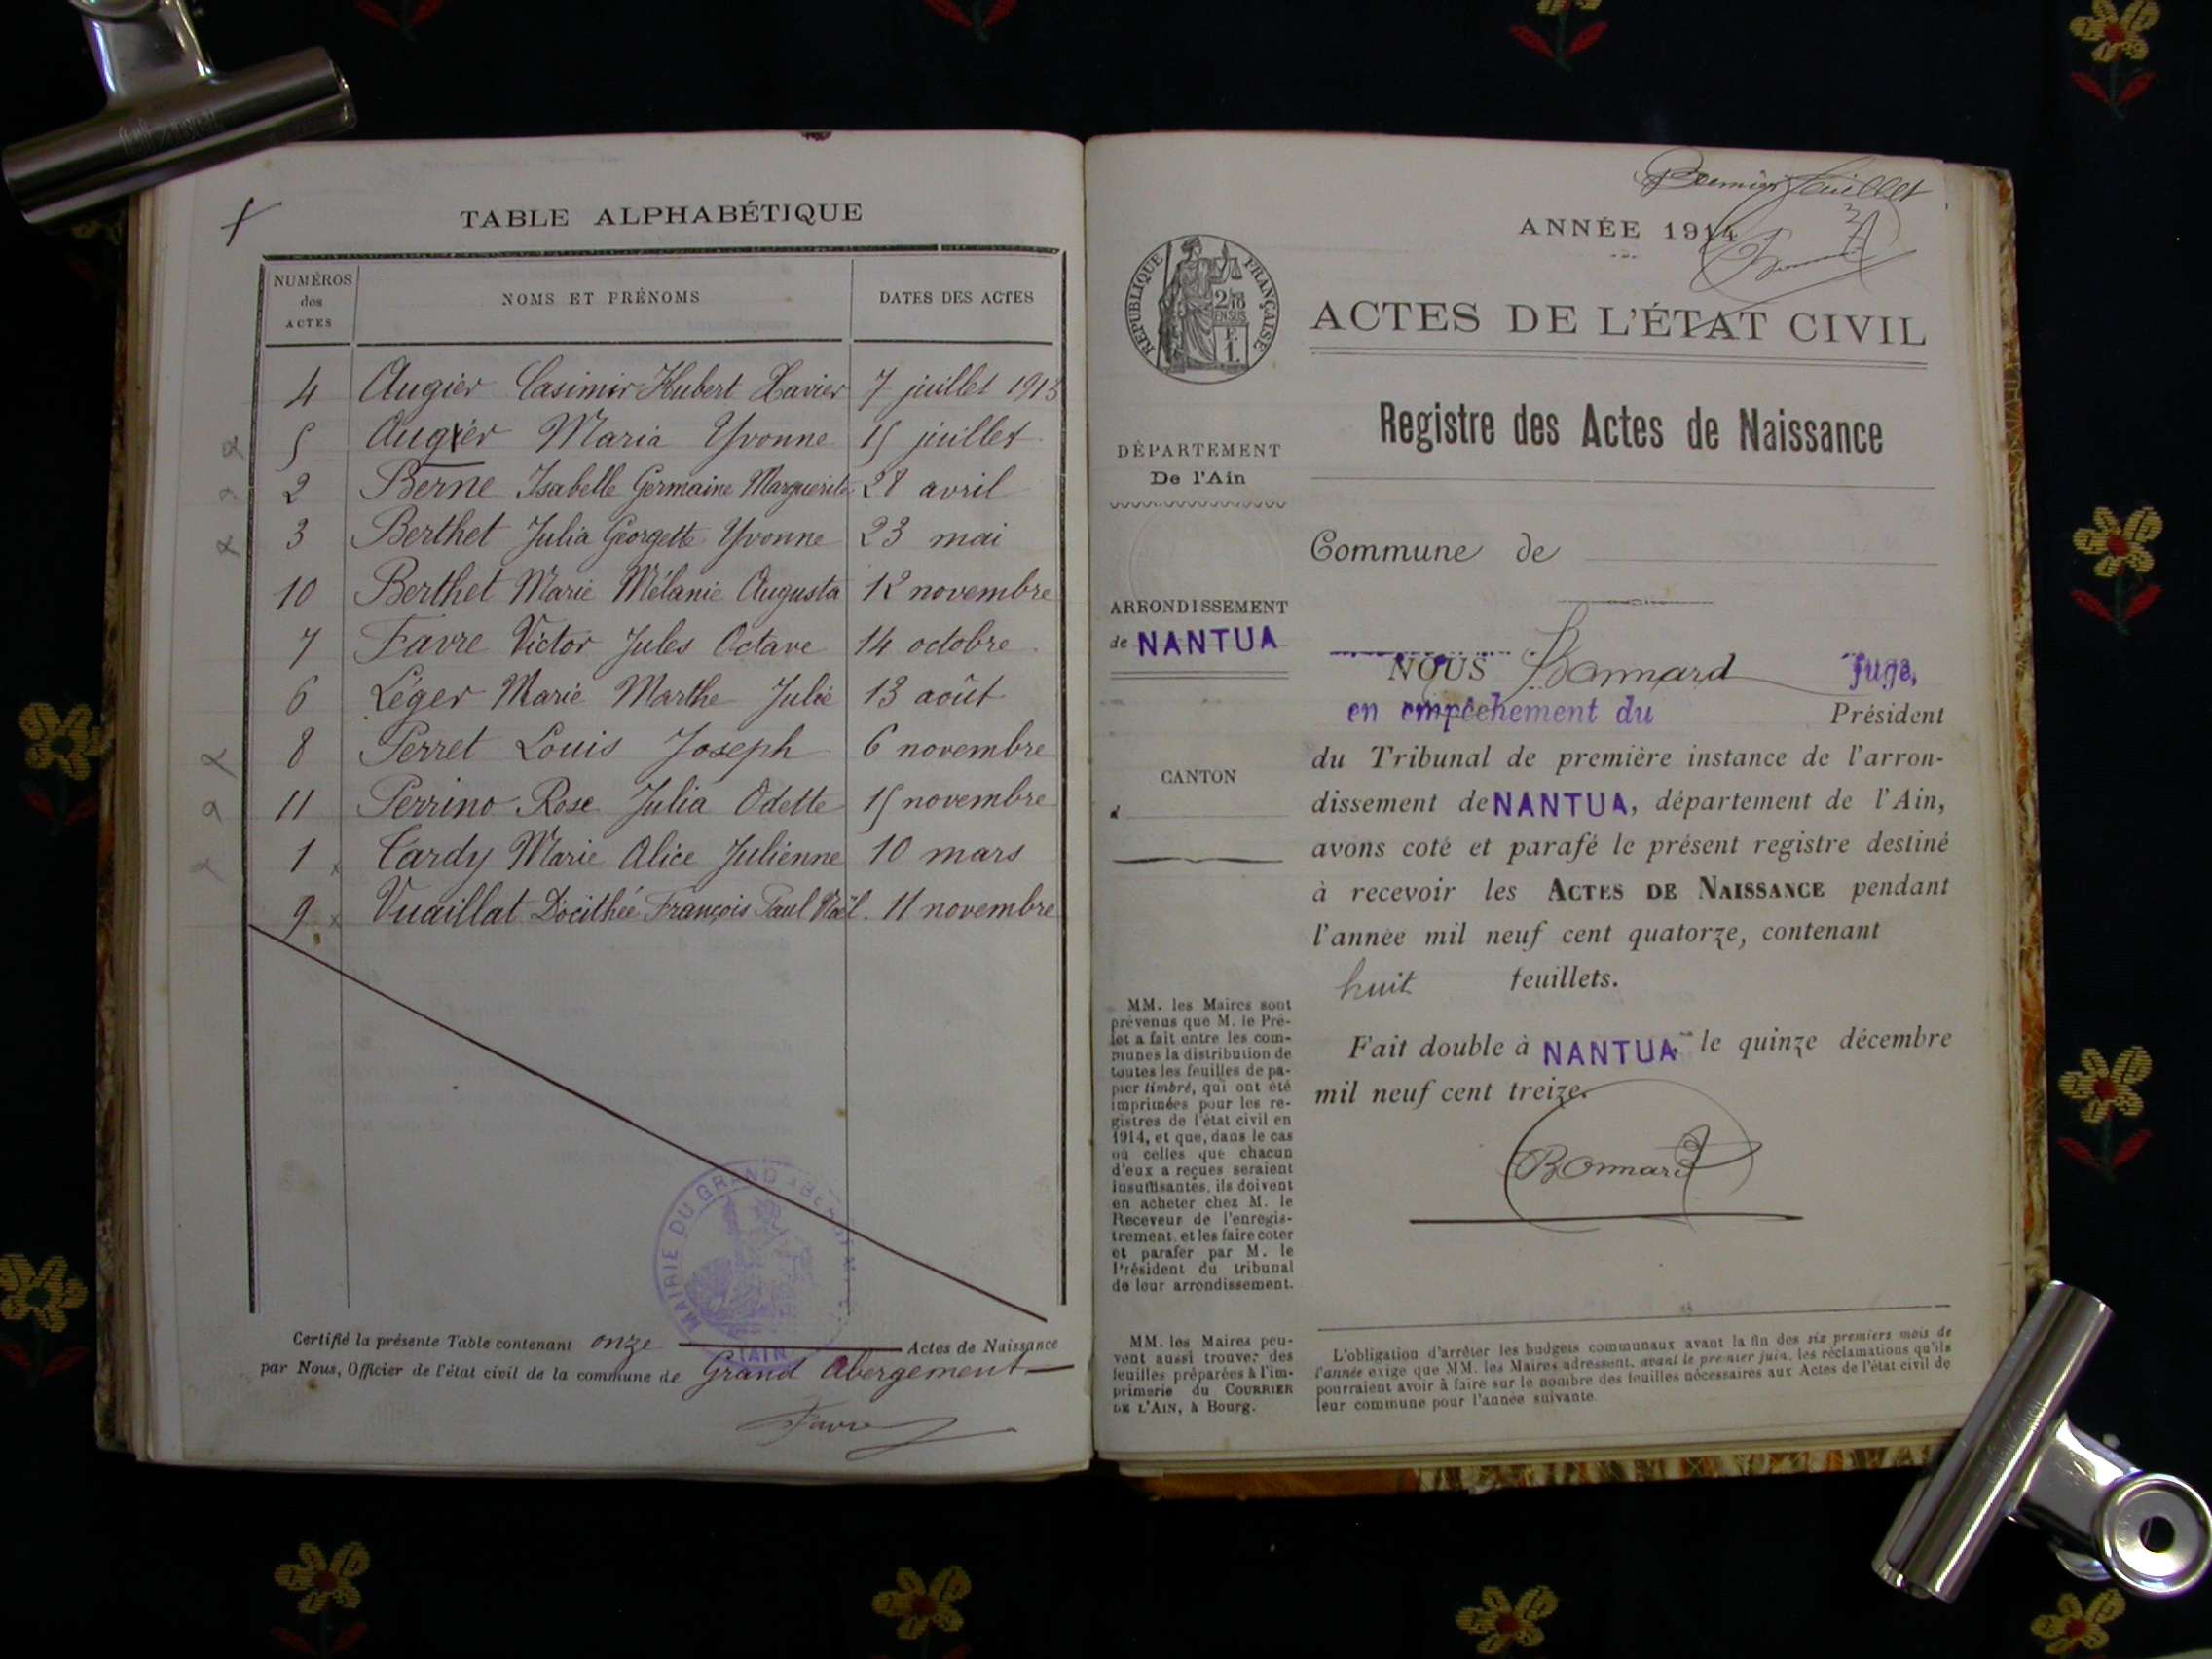 TABLE ALPHABÉTIQUE
NUMÉROS des ACTES
NOMS ET PRÉNOMS
DATES DES ACTES
4 Augier Casimir Hubert Xavier 7 juillet 1913
5 Augier Maria Yvonne 15 juillet
2 Berne Isabelle Germaine Marguerite 28 avril
3 Berthet Julia Georgette Yvonne 23 mai
10 Berthet Marie Mélanie Augusta 12 novembre
7 Favre Victor Jules Octave 14 octobre
6 Léger Marie Marthe Julie 13 août
8 Perret Louis Joseph 6 novembre
11 Perrino Rose Julia Odette 15 novembre
1 Tardy Marie Alice Julienne 10 mars
9 Vuaillat Docithée François Paul Noël 11 novembre
MAIRIE DU GRAND ABERGEMENT
AIN
Certifié la présente Table contenant onze Actes de Naissance
par Nous, Officier de l'état civil de la commune de Grand Abergement
Favre
Premier feuillet
ANNÉE 1914
RÉPUBLIQUE FRANÇAISE
ACTES DE L'ÉTAT CIVIL
Registre des Actes de Naissance
DÉPARTEMENT
De l'Ain
Commune de
ARRONDISSEMENT
de NANTUA
CANTON
d
NOUS Bonnard Juge,
en empêchement du Président
du Tribunal de première instance de l'arron-
dissement de NANTUA, département de l'Ain,
avons coté et parafé le présent registre destiné
à recevoir les ACTES DE NAISSANCE pendant
l'année mil neuf cent quatorze, contenant
huit feuillets.
Fait double à NANTUA, le quinze décembre
mil neuf cent treize.
Bonnard
MM. les Maires sont
prévenus que M. le Pré-
fet a fait entre les com-
munes la distribution de
toutes les feuilles de pa-
pier timbré, qui ont été
imprimées pour les re-
gistres de l'état civil en
1914, et que, dans le cas
où celles que chacun
d'eux a reçues seraient
insuffisantes, ils doivent
en acheter chez M. le
Receveur de l'enregis-
trement, et les faire coter
et parafer par M. le
Président du tribunal
de leur arrondissement.
MM. les Maires peu-
vent aussi trouver des
feuilles préparées à l'im-
primerie du COURRIER
DE L'AIN, à Bourg.
L'obligation d'arrêter les budgets communaux avant la fin des six premiers mois de
l'année exige que MM. les Maires adressent, avant le premier juin, les réclamations qu'ils
pourraient avoir à faire sur le nombre des feuilles nécessaires aux Actes de l'état civil de
leur commune pour l'année suivante.